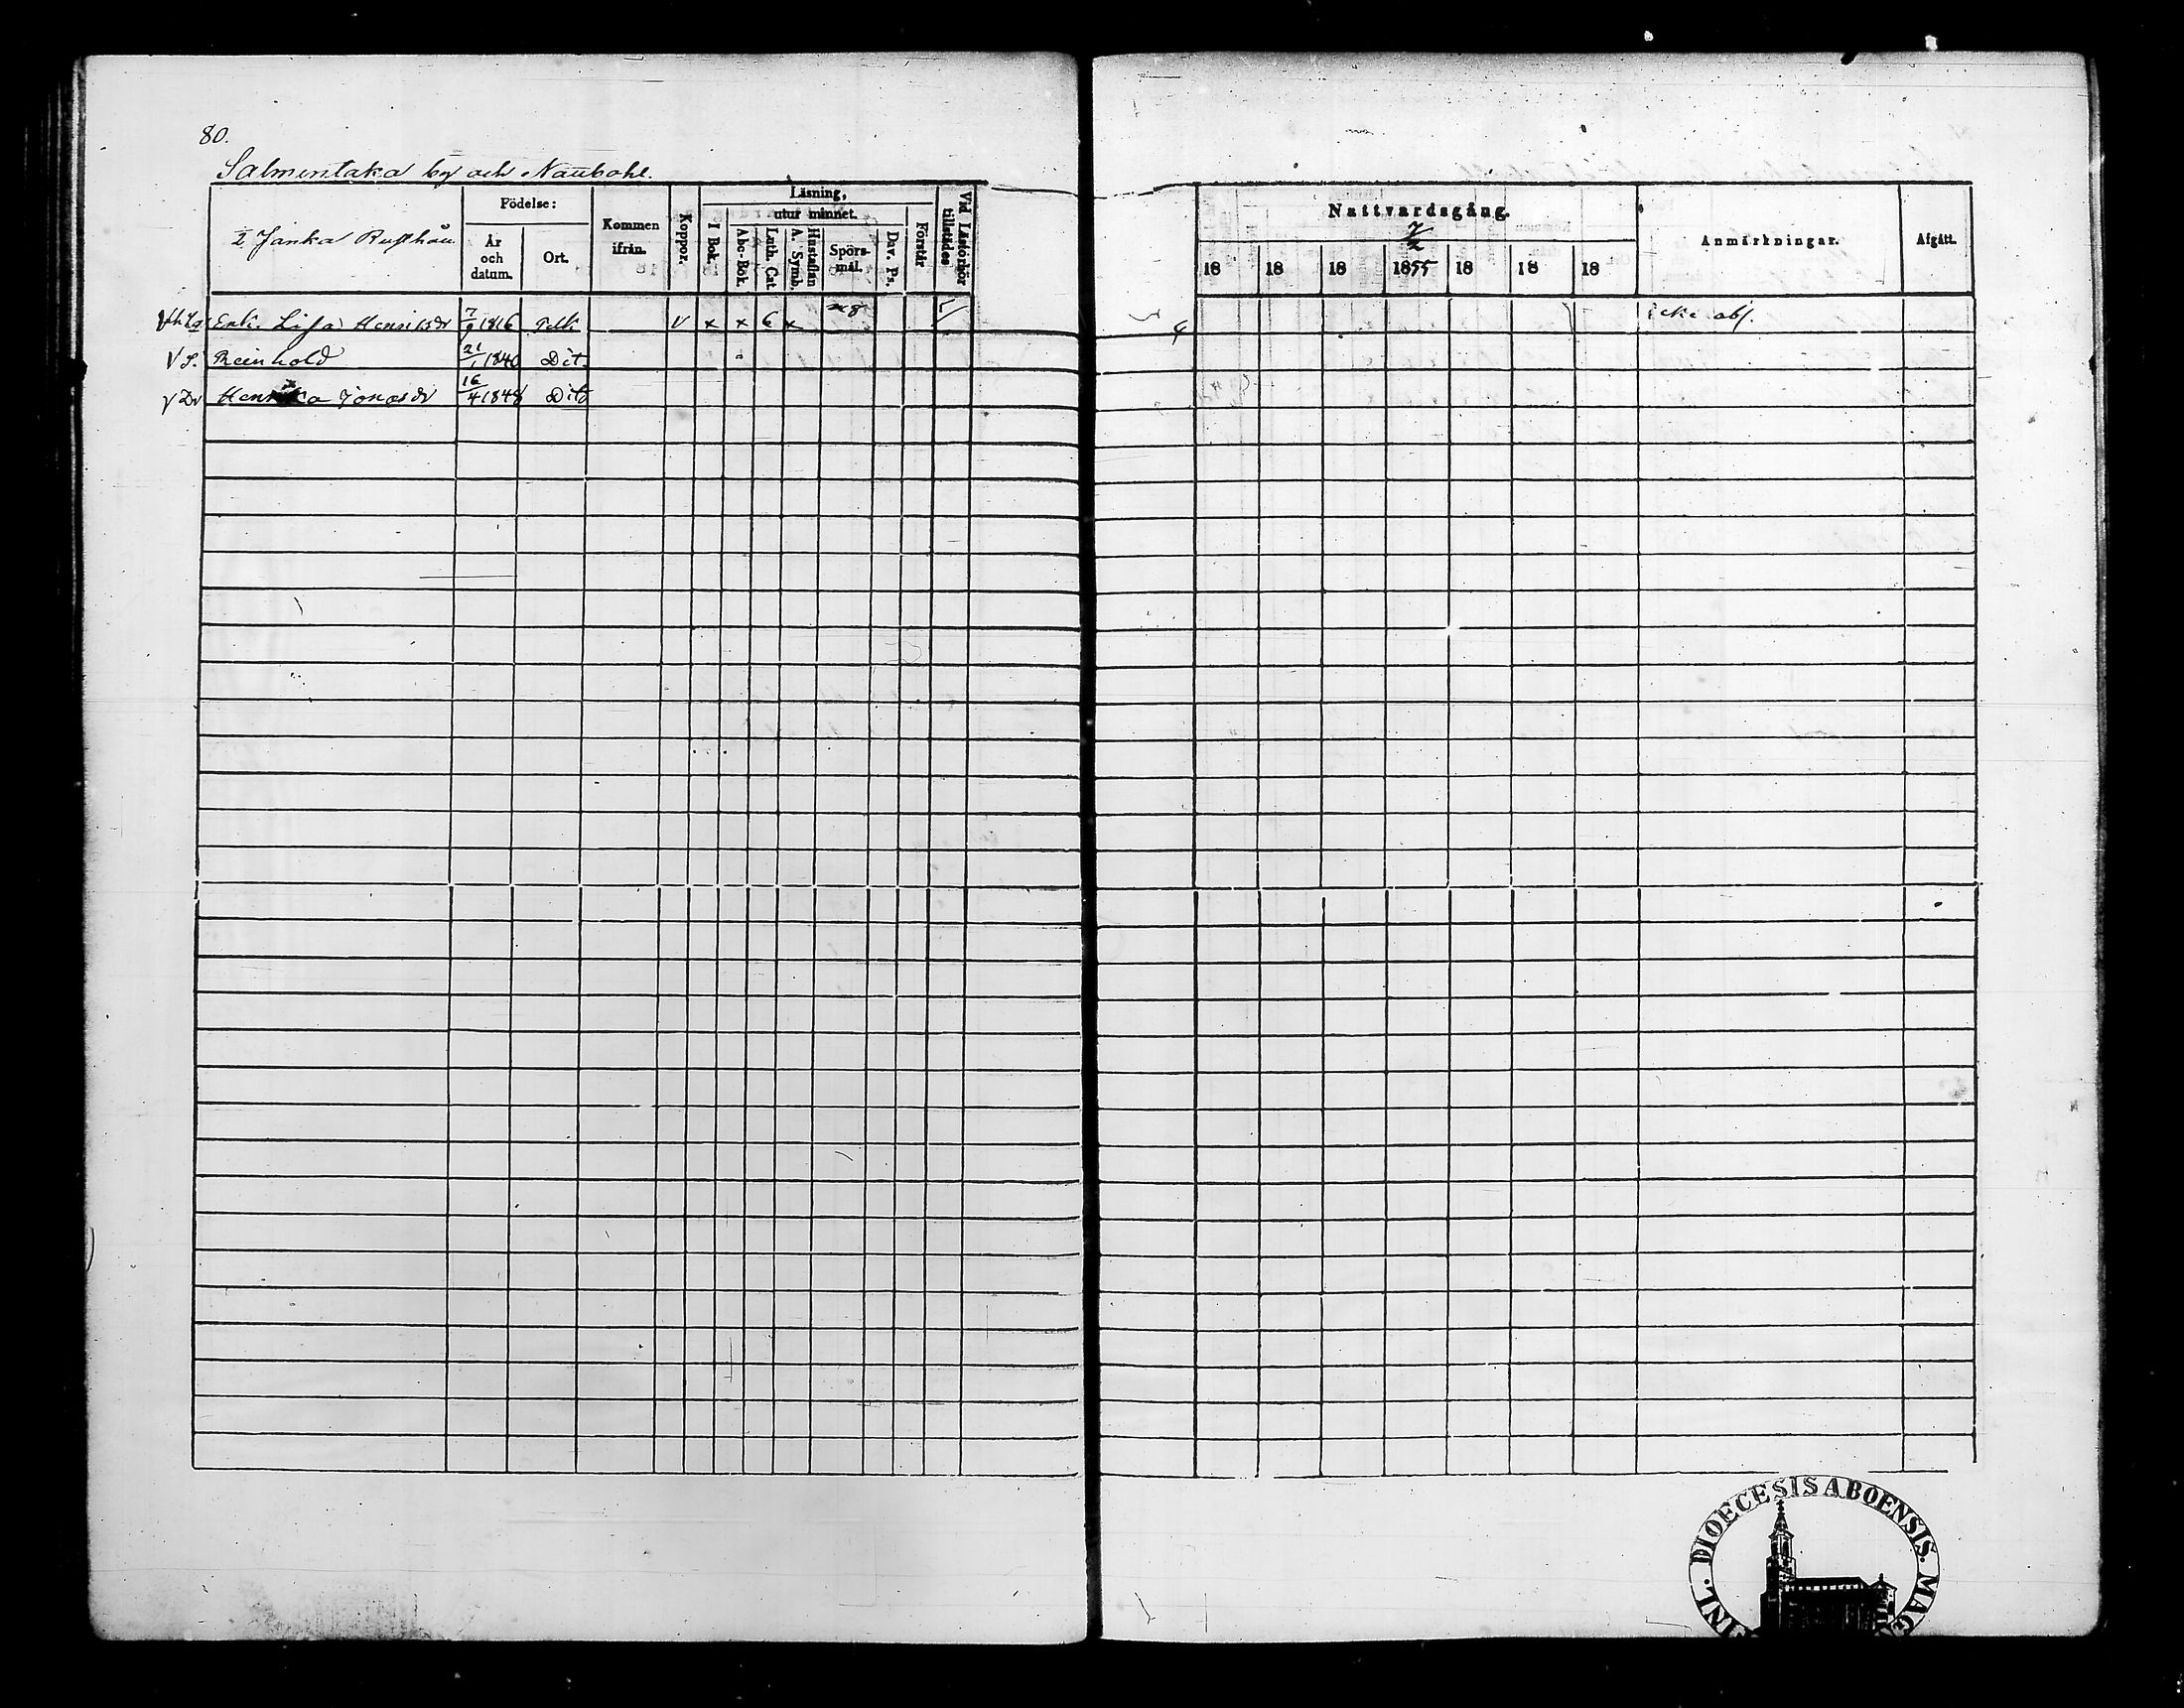 80.
Salmentaka by och Naubohl.
½ Janka Rusthåll
Födelse:
År och datum.
Ort.
Kommen ifrån.
Koppor.
Läsning,
utur minnet.
I Bok.
Abc-Bok.
Luth. Cat.
Hustaflan A. Symb.
Spörs-mål.
Dav. Ps.
Förstår
Vid Läsförhör tillstädes
Nattvardsgång.
18 18 18 1855 18 18 18
Anmärkningar.
Afgått.
Enk. Lisa Henriksdr 7/9 1816 V x x 6 x 8 icke abs.
V S. Reinhold 21/1 1840 Dit
V Dr Henrika Jonasdr 16/4 1848 Dito
FINL. DIOECESIS ABOENSIS. MAG